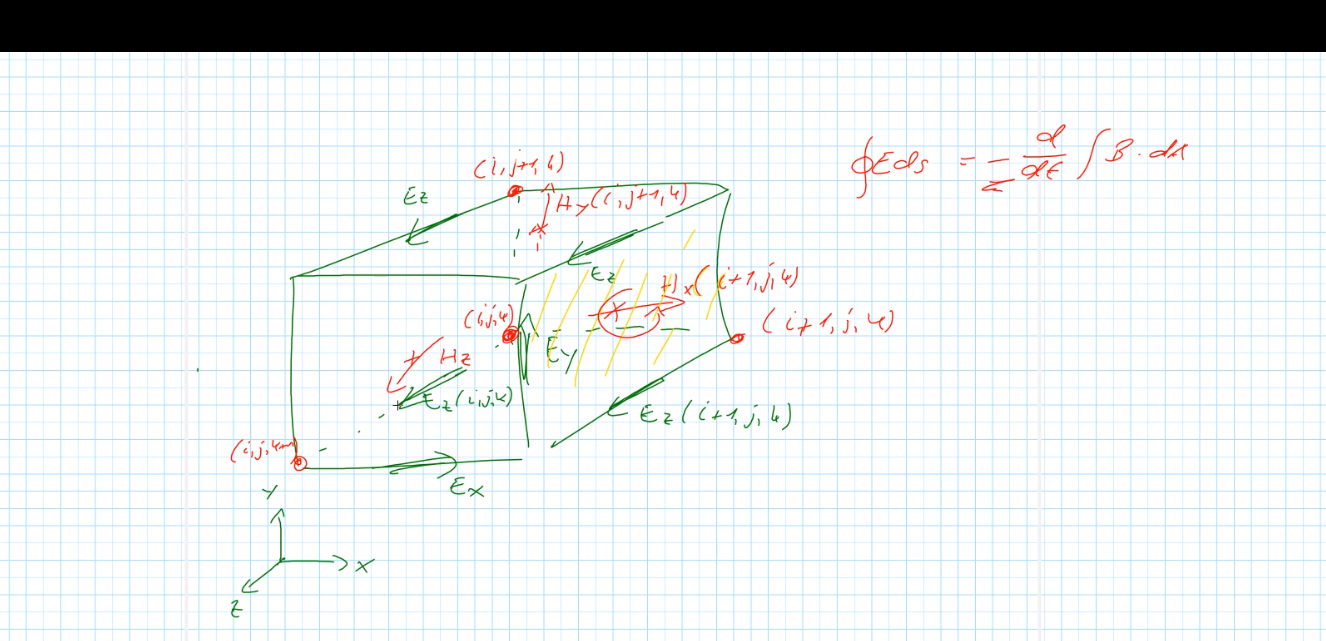 ∮Eds = - d/dt ∫B·dA
(i,j+1,k)
Ez
Hy(i,j+1,k)
Ez
Hx(i+1,j,k)
(i,j,k)
(i+1,j,k)
Ey
Hz
Ez(i,j,k)
Ez(i+1,j,k)
Ex
Y
X
Z